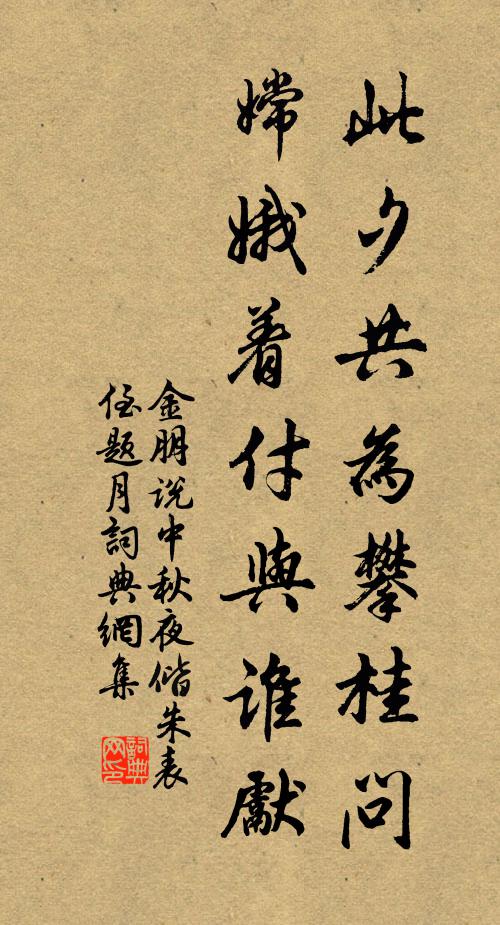 此夕共為攀桂問
嫦娥着付與誰獻
金朋说中秋夜偕朱表
侄題月詞典網集
詞典网印